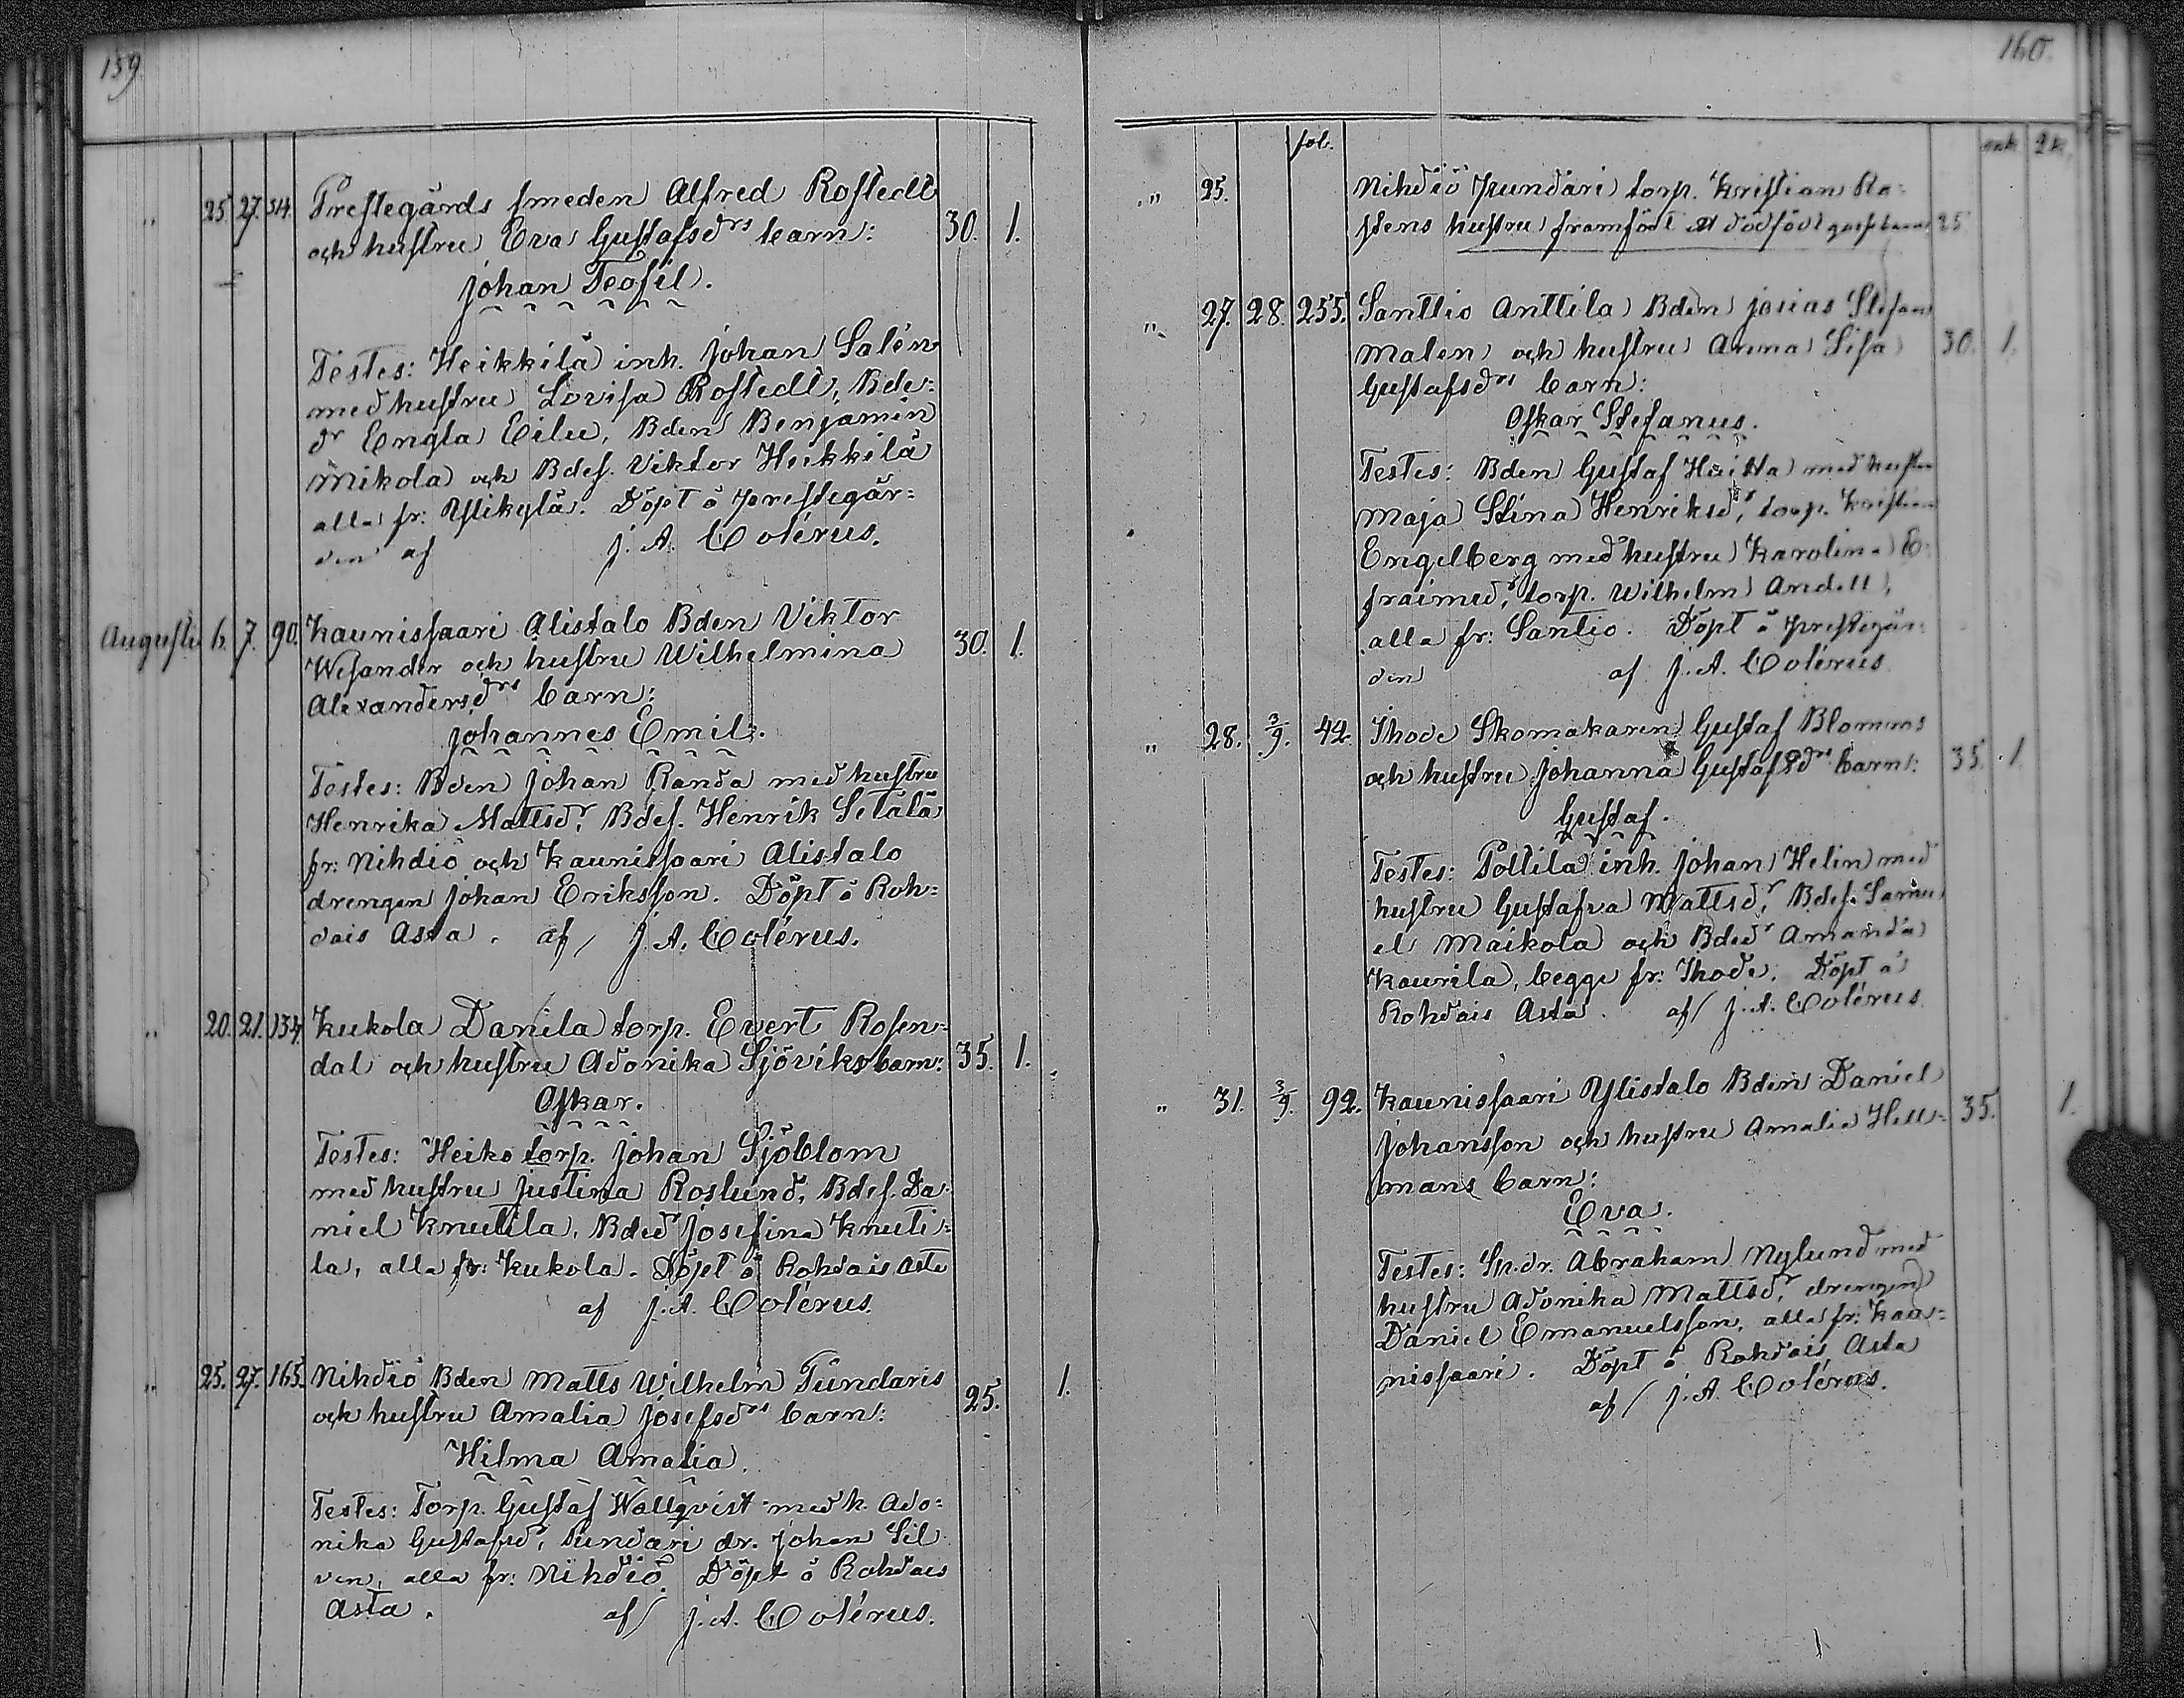 159
„ 25. 27. 314. Prestegårds smeden Alfred Rostedt
och hustru Eva Gustafsdrs barn: 30. 1.
Johan Teofil.
Testes: Heikkilä inh. Johan Salén
med hustru Lovisa Rostedt, Bde=
dr Engla Eilu, Bden Benjamin
Mikola och Bdes. Viktor Heikkilä
alla fr: Ylikylä. Döpt å prestegår=
den af J. A. Colérus.
Augusti 6. 7. 90. Kaunissaari Alistalo Bden Viktor
Wesander och hustru Wilhelmina 30. 1.
Alexandersdrs barn:
Johannes Emil.
Testes: Bden Johan Randa med hustru
Henrika Mattsdr, Bdes. Henrik Setälä
fr: Nihdiö och Kaunissaari Alistalo
drengen Johan Eriksson. Döpt å Roh=
dais Asta. af J. A. Colérus.
„ 20. 21. 134. Kukola Danila torp. Evert Rosen=
dal och hustru Adonika Sjöviks barn: 35. 1.
Oskar.
Testes: Heiko torp. Johan Sjöblom
med hustru Justina Roslund, Bdes. Da
niel Knutila, Bdedr Josefina Knuti=
la, alla fr: Kukola. Döpt å Rohdais Asta
af J. A. Colérus.
„ 25. 27. 165. Nihdiö Bden Matts Wilhelm Pundaris
och hustru Amalia Josefsdrs barn: 25. 1.
Hilma Amalia.
Testes: Torp. Gustaf Wallqvist med h. Ado=
nika Gustafsdr, Pundari dr. Johan Sil
ven, alla fr: Nihdiö. Döpt å Rohdais
Asta. af J. A. Colérus.
160.
fol. mk 2k.
„ 25. Nihdiö Pundari torp. Kristian Ro=
stens hustru framfödt et dödfödt gossebarn 25
„ 27. 28. 255. Santtio Anttila Bden Josias Stefans
Malen och hustru Anna Lisa 30. 1.
Gustafsdrs barn:
Oskar Stefanus.
Testes: Bden Gustaf Heitta med hustru
Maja Stina Henriksdr, torp. Kristian
Engelberg med hustru Karolina E=
fraimsdr, torp. Wilhelm Andell,
alla fr: Santio. Döpt å prestegår=
den af J. A. Colérus
„ 28. 3/9. 42. Ihode Skomakaren Gustaf Blomroos
och hustru Johanna Gustafsdrs barn: 35. 1
Gustaf.
Testes: Polttila inh. Johan Helin med
hustru Gustafva Mattsdr, Bdes. Samu
el Maikola och Bdedr Amanda
Kaurila, begge fr: Ihode. Döpt å
Rohdais Asta. af J. A. Colérus
„ 31. 3/9. 92. Kaunissaari Ylistalo Bden Daniel
Johansson och hustru Amalia Hell= 35. 1.
mans barn:
Eva.
Testes: Sp.dr. Abraham Nylund med
hustru Adonika Mattsdr, drengen
Daniel Emanuelsson, alla fr: Kau=
nissaari. Döpt å Rohdais Asta
af J. A. Colérus.